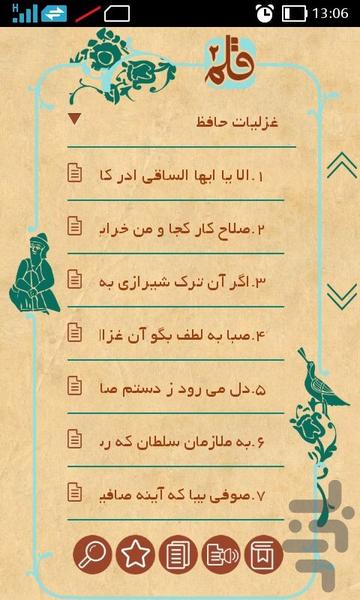 H 13:06
قلم ۲
غزلیات حافظ
۱.الا یا ایها الساقی ادر کا
۲.صلاح کار کجا و من خراب
۳.اگر آن ترک شیرازی به
۴.صبا به لطف بگو آن غزا
۵.دل می رود ز دستم صا
۶.به ملازمان سلطان که ر
۷.صوفی بیا که آینه صافی
بازار